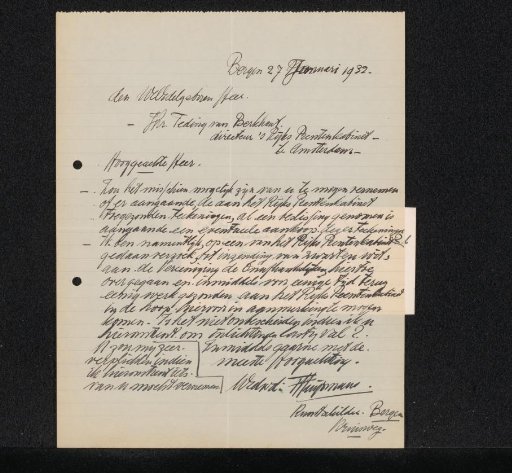 Bergen 27 Januari 1932.
den WelEdelgeboren Heer.
– Jhr Teding van Berkhout.
directeur 's Rijks Prentenkabinet –
te Amsterdam –
Hooggeachte Heer.
– Zou het misschien mogelijk zijn van u te mogen vernemen
of er aangaande de aan het Rijks Prentenkabinet
teekeningen, al een beslissing genomen is
aangaande een eventueele aankoop dezer teekeningen
– Ik ben namentlijk, op een van het Rijks Prentenkabinet
gedaan verzoek, tot inzending van zwart en wit
aan de Vereeniging de Onafhankelijken
overgegaan en inmiddels voor eenige tijd terug
eenig werk gezonden aan het Rijks Prentenkabinet
in de hoop hiervoor in aanmerking te mogen
komen. Is het niet onbescheiden indien ik u
hieromtrent om inlichtingen
Ik zou mij zeer
verplichten indien
ik hieromtrent iets
van u mocht vernemen
Inmiddels gaarne met de
meeste Hoogachting.
Kunstschilder. Bergen